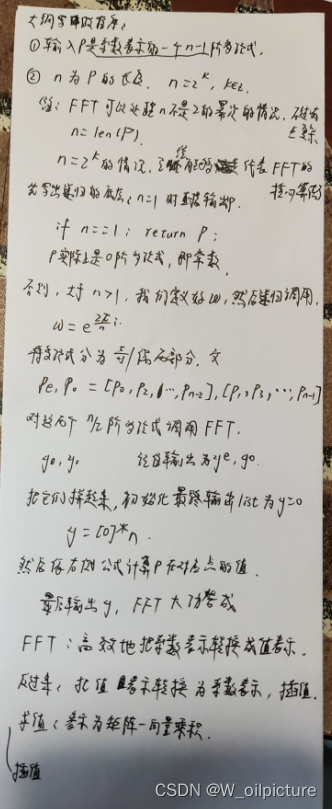 ① 输入P是系数表示的一个n-1阶多项式.
② n为P的长度. n=2^k, k∈Z.
注: FFT可以处理n不是2的幂次的情况.
n=len(P).
n=2^k的情况, 代表FFT的
先写出递归的底层, n=1时直接输出P.
if n==1: return P;
P实际上是0阶多项式, 即常数.
否则, 对于n>1, 我们定义好ω, 然后递归调用,
ω=e^{2π/n i}.
多项式分为奇/偶两部分.
Pe, Po = [P0, P2, ..., Pn-2], [P1, P3, ..., Pn-1]
对这两个n/2阶多项式调用FFT.
输出为ye, yo.
把它们拼起来, 初始化最终输出list为y=0
y=[0]*n.
然后按右侧公式计算P在对应点的值.
最后输出y, FFT大功告成
FFT: 高效地把系数表示转换成值表示.
反过来, 把值表示转换为系数表示, 插值.
求值: 表示为矩阵-向量乘积.
插值
CSDN @W_oilpicture